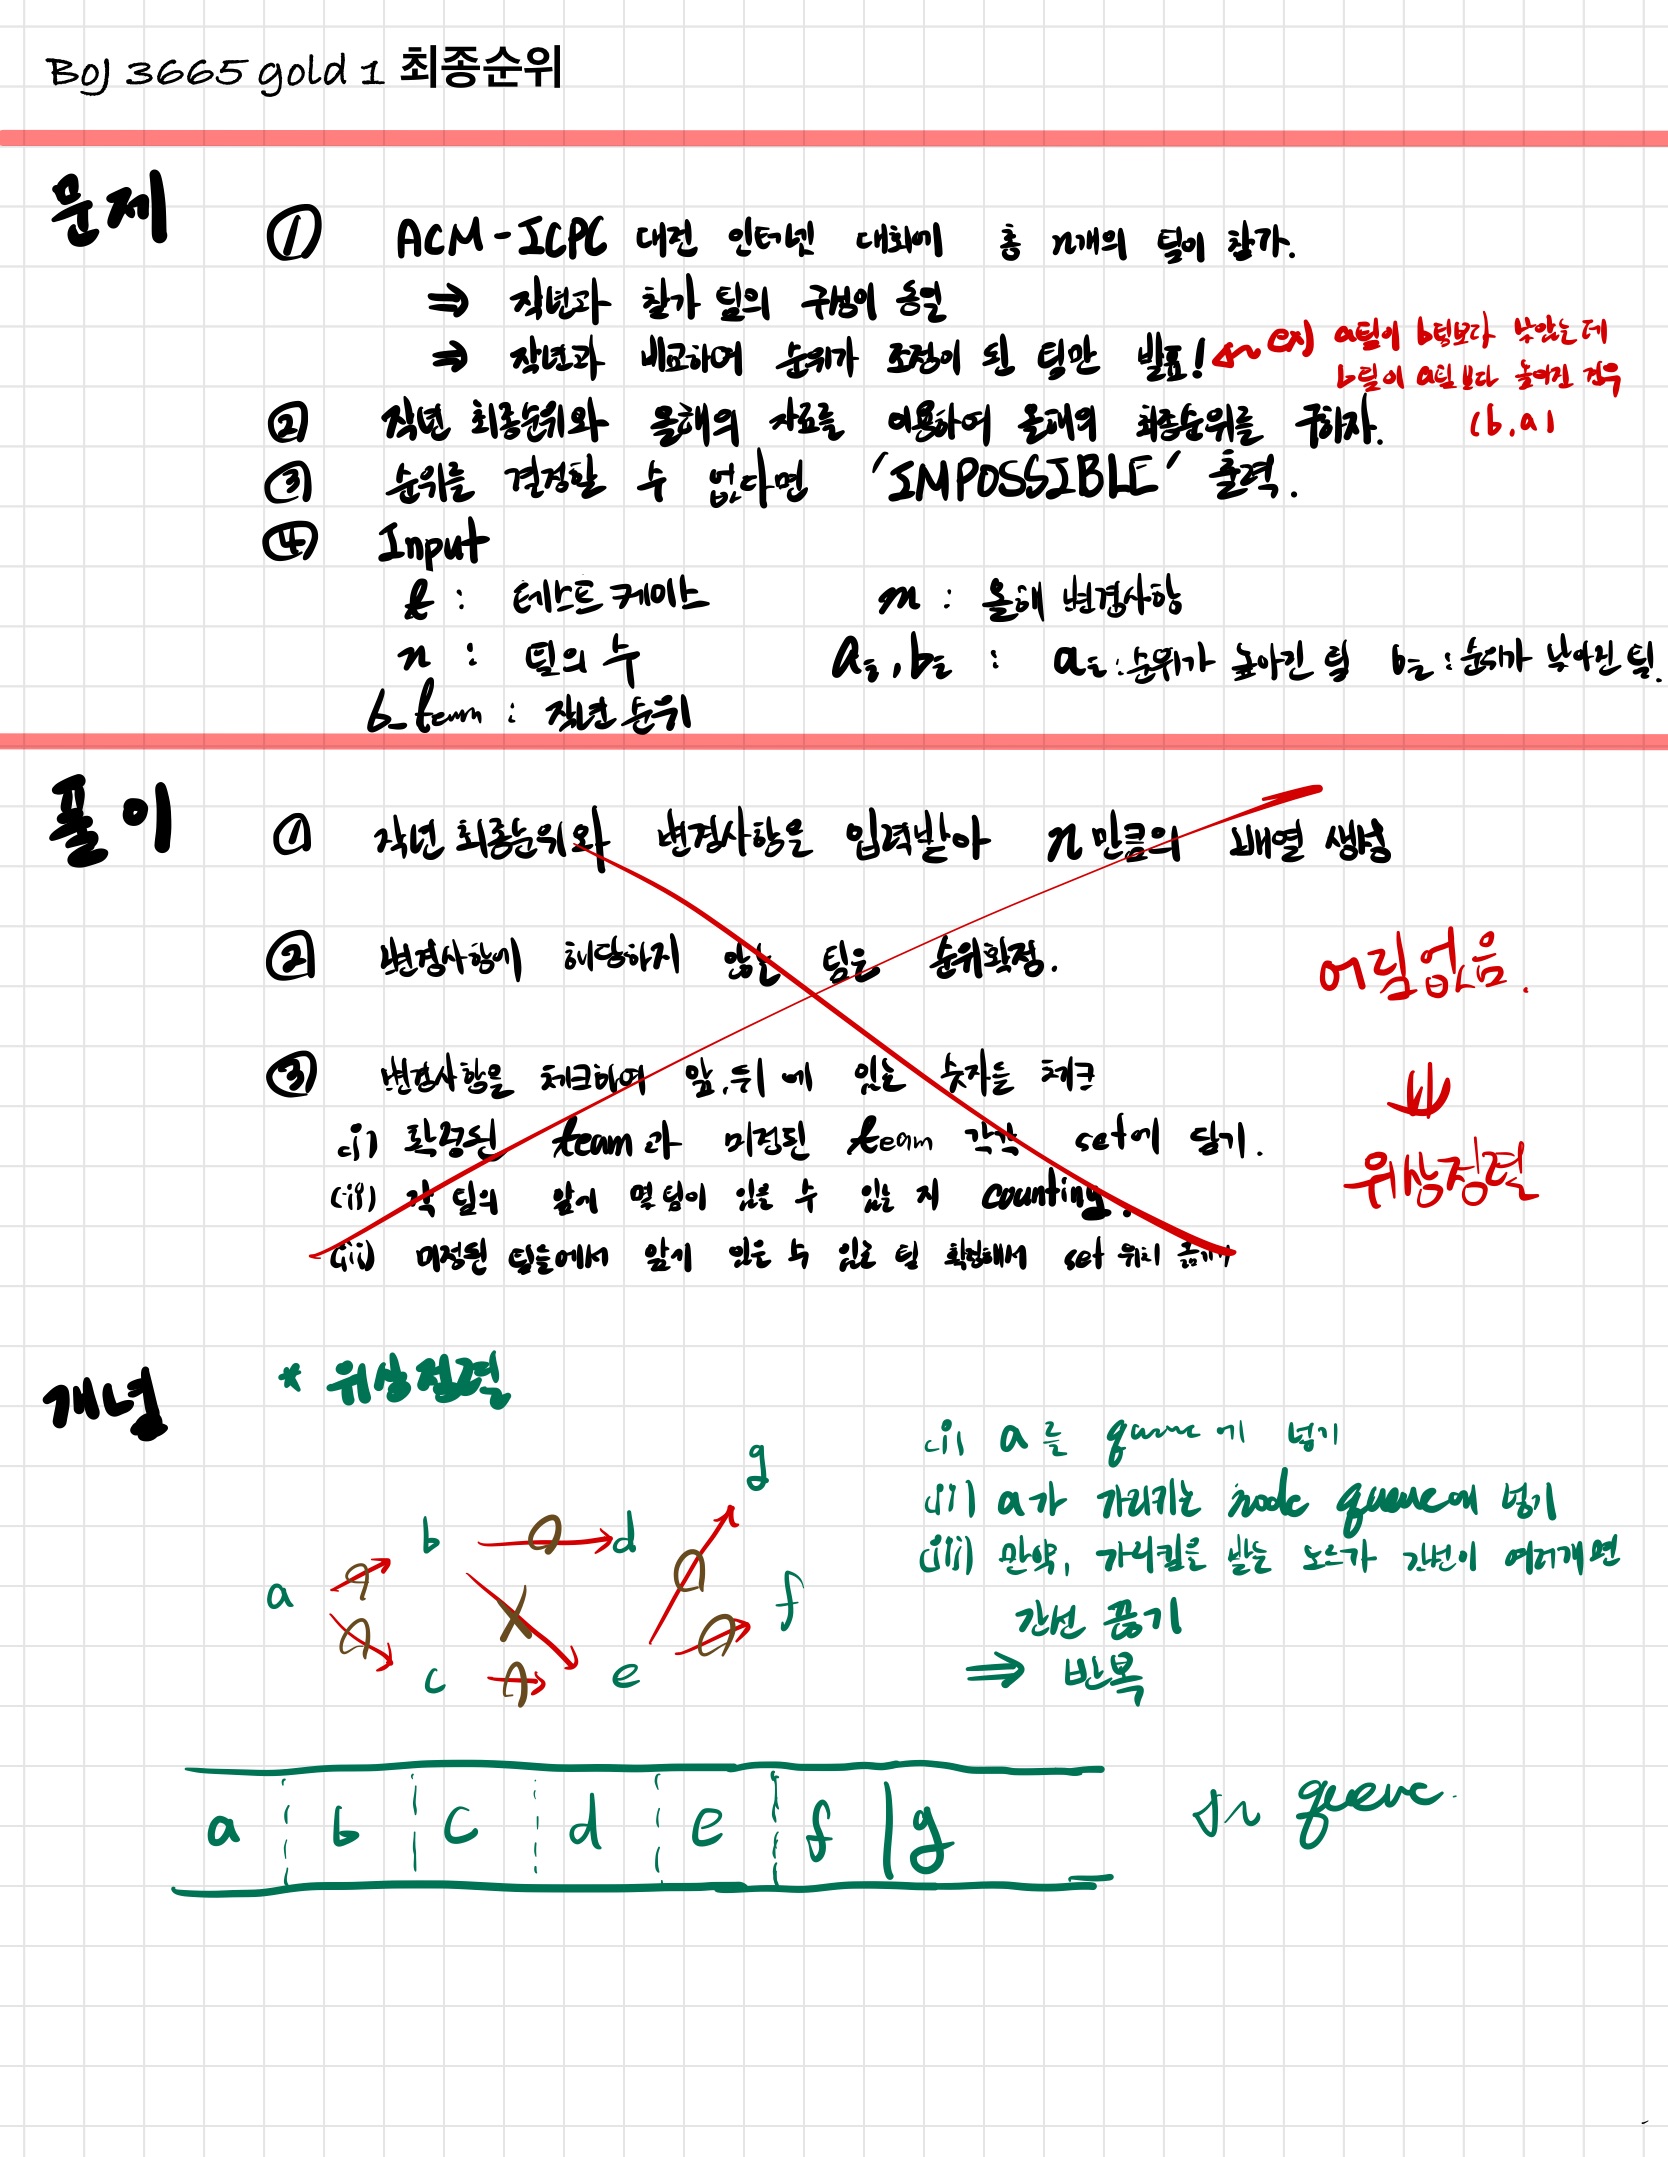 BOJ 3665 gold 1 최종순위
문제
① ACM-ICPC 대전 인터넷 대회에 총 n개의 팀이 참가.
⇒ 작년과 참가 팀의 구성이 동일
⇒ 작년과 비교하여 순위가 조정이 된 팀만 발표!
ex) a팀이 b팀보다 낮았는데
b팀이 a팀보다 높아진 경우
(b,a)
② 작년 최종순위와 올해의 자료를 이용하여 올해의 최종순위를 구하자.
③ 순위를 결정할 수 없다면 'IMPOSSIBLE' 출력.
④ Input
t : 테스트 케이스 m : 올해 변경사항
n : 팀의 수 ai, bi : ai : 순위가 높아진 팀 bi : 순위가 낮아진 팀.
b_team : 작년 순위
풀이
① 작년 최종순위와 변경사항을 입력받아 n만큼의 배열 생성
② 변경사항에 해당하지 않는 팀은 순위확정.
어림없음.
⇓
위상정렬
③ 변경사항을 체크하여 앞,뒤에 있는 숫자들 체크
(i) 확정된 team과 미정된 team 각각 set에 담기.
(ii) 각 팀의 앞에 몇 팀이 있을 수 있는지 counting.
(iii) 미정된 팀들에서 앞에 있을 수 있는 팀 확정해서 set 위치
개념
* 위상정렬
(i) a를 queue에 넣기
(ii) a가 가리키는 node queue에 넣기
(iii) 만약, 가리킴을 받는 노드가 간선이 여러개면
간선 끊기
⇒ 반복
g
b d
a f
c e
a b c d e f g
queue